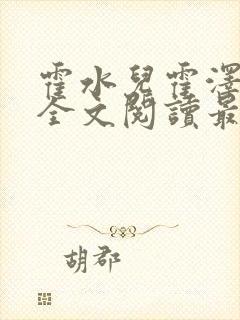 霍水兒霍澤
全文閱讀最
胡郡